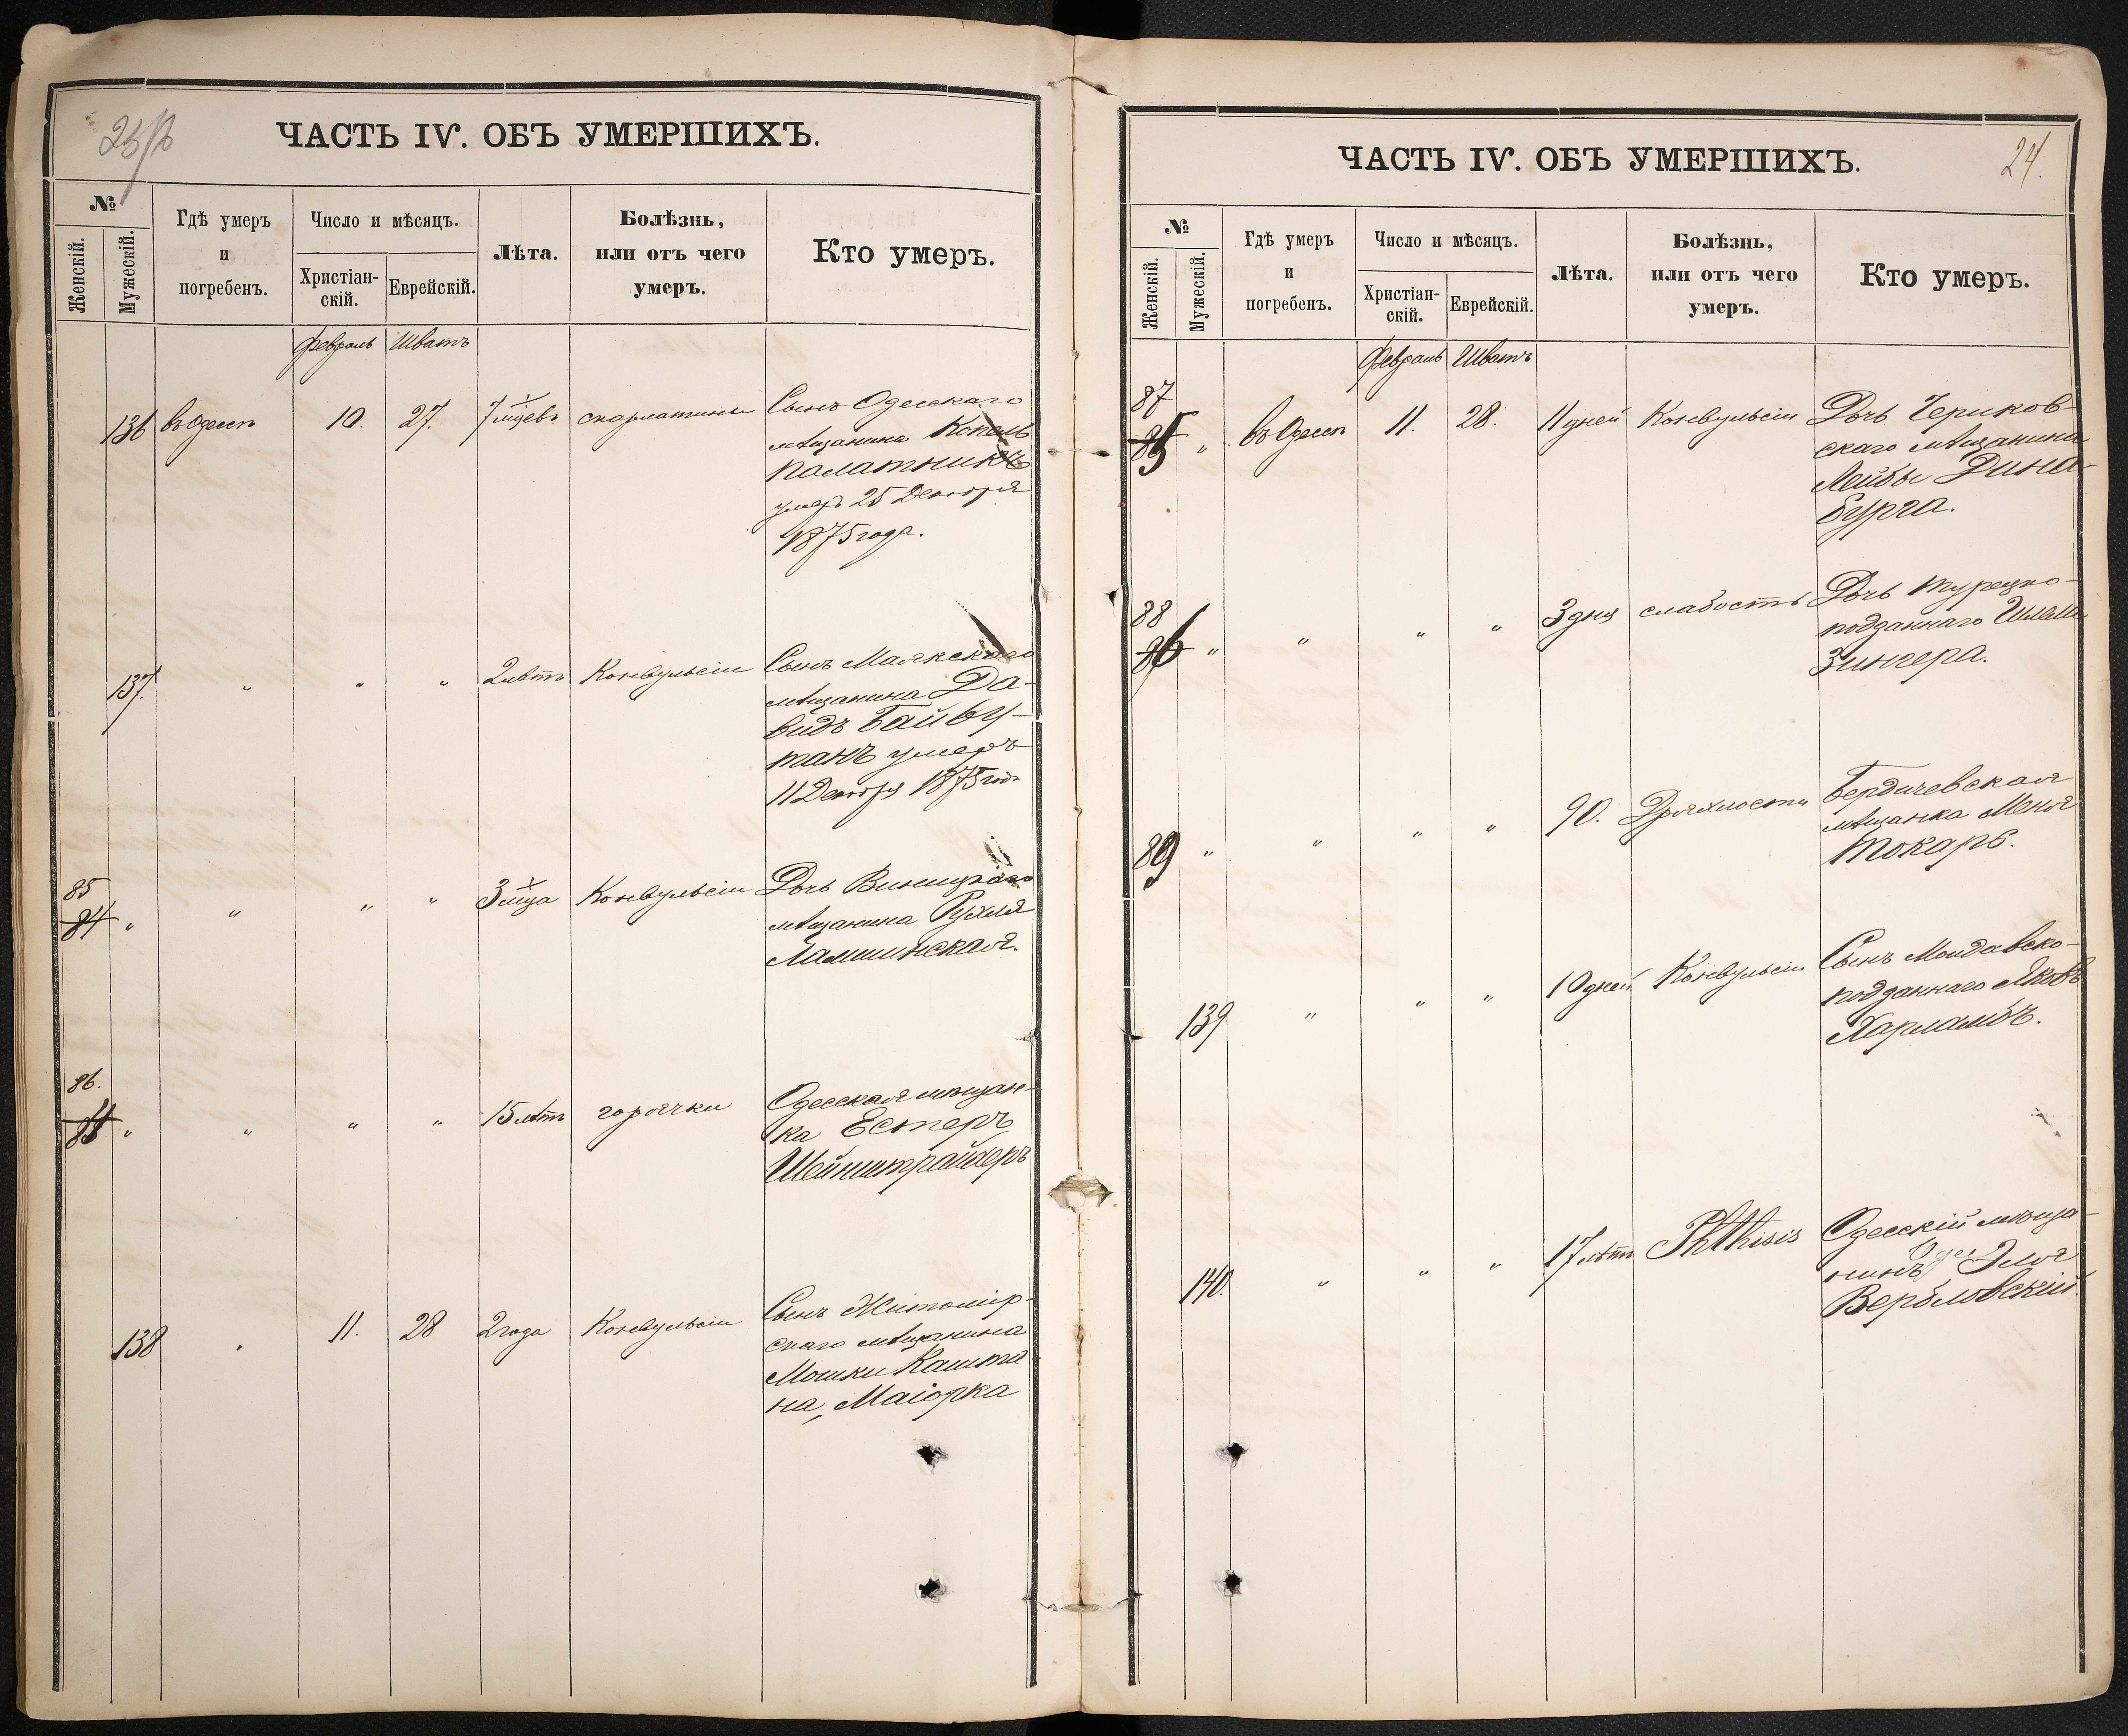 ЧАСТЬ IV. ОБЪ УМЕРШИХЪ.
№
Женскій.
Мужескій.
Гдѣ умеръ
и
погребенъ.
Число и мѣсяцъ.
Христіан-
скій.
Еврейскій.
Лѣта.
Болѣзнь,
или отъ чего
умеръ.
Кто умеръ.
Февраль Шватъ
136 въ Одессѣ 10. 27. 7 мцевъ скарлатины Сынъ Одесскаго
мѣщанина Копель
Палатникъ
умеръ 25 Декабря
1875 года.
137. " " " 2 лѣтъ Конвульсіи Сынъ Маякскаго
мѣщанина Да-
видъ Байбу-
танъ умеръ
11 Декабря 1875 год
85
84 " " " " 3 мца Конвульсіи Дочь Виницкаго
мѣщанина Рухля
Ламшинская.
86.
" " " " 15 лѣтъ горячки Одесская мѣщан-
ка Естеръ
Шейнштрайдеръ
138 " 11. 28 2 года Конвульсіи Сынъ Житомір-
скаго мѣщанина
Мошки Кашта
на, Маіорка
ЧАСТЬ IV. ОБЪ УМЕРШИХЪ.
24.
№
Женскій.
Мужескій.
Гдѣ умеръ
и
погребенъ.
Число и мѣсяцъ.
Христіан-
скій.
Еврейскій.
Лѣта.
Болѣзнь,
или отъ чего
умеръ.
Кто умеръ.
Февраль Шватъ
87
85 " въ Одессѣ 11. 28. 11 дней Конвульсіи Дочь Чериков-
скаго мѣщанина
Лейбы Дина-
бурга.
88
86 " " " " 3 дня слабость Дочь турецко-
подданнаго Шлемы
Зингера.
89 " " " " 90. Дряхлости Бердичевская
мѣщанка Меня
Токарь.
139 " " " 10 дней Конвульсіи Сынъ Молдавско-
подданнаго Яковъ
Харламбъ.
140. " " " 17 лѣтъ Phthisis Одесскій мѣща-
нинъ Эля
Вербловскій.